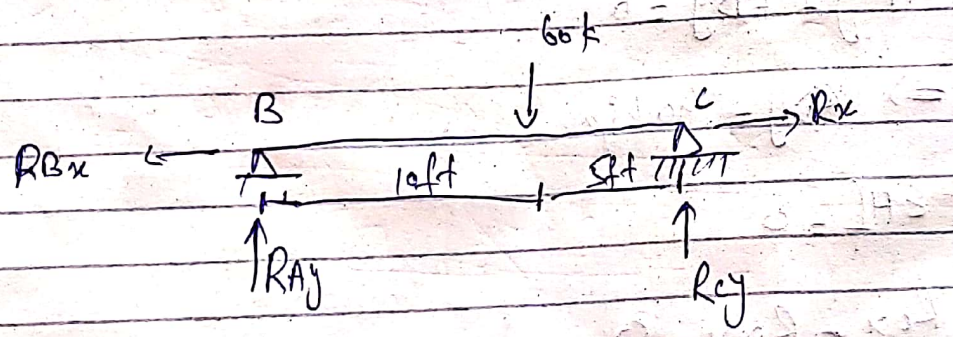 60 k
B
C
Rx
RBx
10ft
5ft
RAy
Rcy